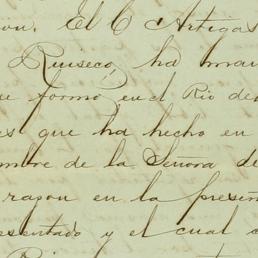 on. El C Artigas
Ruiseco, ha man
e formó en el Rio de
es que ha hecho en
mbre de la Señora de
razon en la presen
esentado y el cual c